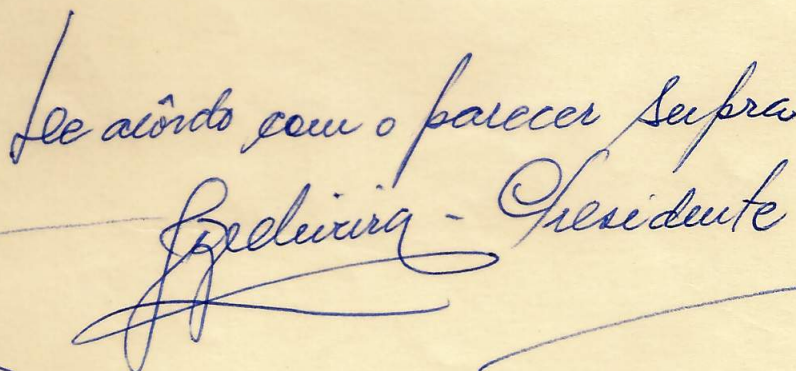 De acôrdo com o parecer supra
- Presidente